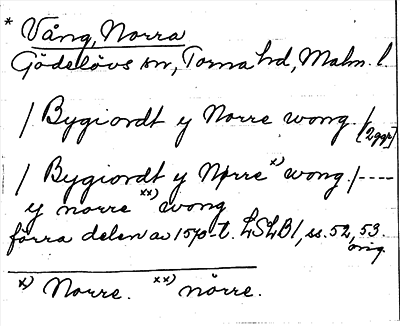 * Vång, Norra
Gödelövs sn, Torna hd, Malm. l.
/ Bygiordt y Norre wong. / (2ggr)
/ Bygiordt y Nørre x) wong. / ----
y norre xx) wong
förra delen av 1570-t. LSLB 1, ss. 52, 53.
orig.
x) Norre. xx) nörre.